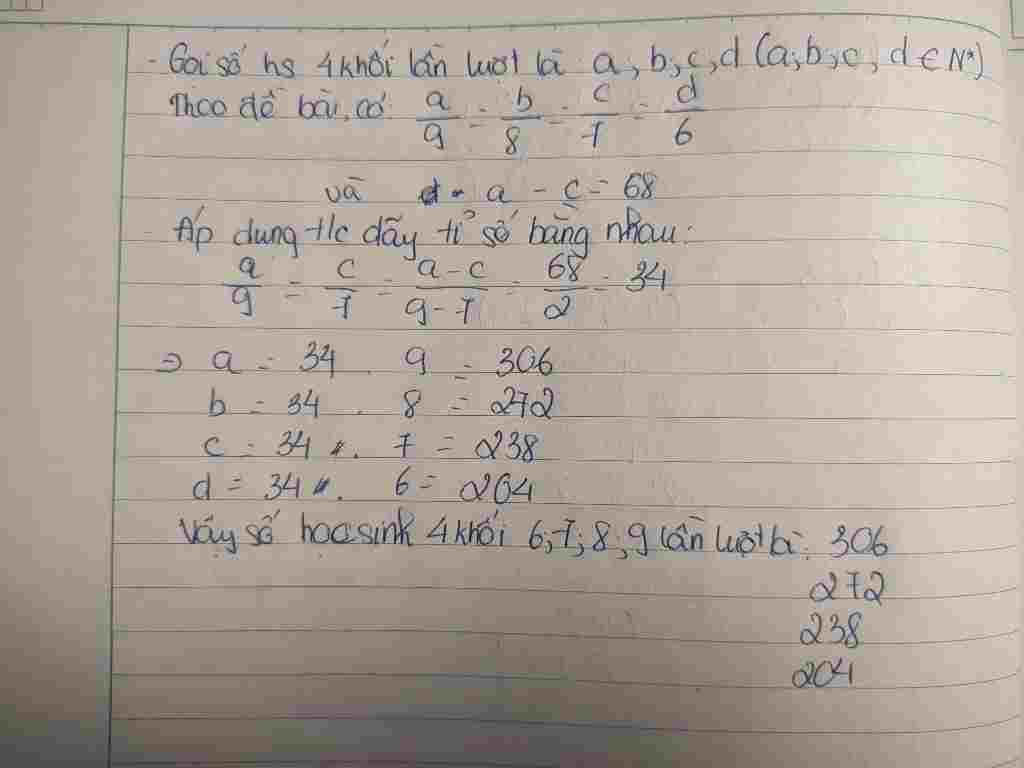 - Gọi số hs 4 khối lần lượt là a, b, c, d (a; b; c, d ∈ N*)
Theo đề bài, có: a/9 = b/8 = c/7 = d/6
và a - c = 68
Áp dụng t/c dãy tỉ số bằng nhau:
a/9 = c/7 = a-c/9-7 = 68/2 = 34
⇒ a = 34 . 9 = 306
b = 34 . 8 = 272
c = 34 . 7 = 238
d = 34 . 6 = 204
Vậy số học sinh 4 khối 6; 7; 8; 9 lần lượt là: 306
272
238
204